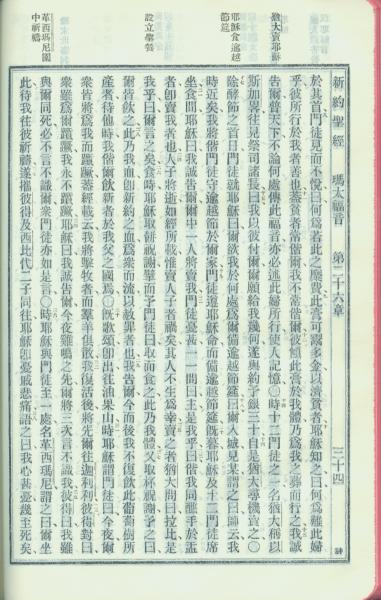 新約聖經 瑪太福音 第二十六章 三十四
猶大賣耶穌
耶穌食逾越
節筵
設立聖餐
革西瑪尼園
中祈禱
於其首門徒見而不悅曰何為若此之靡費此膏可鬻多金以濟貧者耶穌知之曰何為難此婦
乎彼所行於我者善也蓋貧者常偕爾我不常偕爾彼傾此膏於我體乃為我之葬而行之我誠
告爾普天下不論何處傳此福音亦必述此婦所行使人記憶○時十二門徒之一名猶大稱以
斯加畧往見祭司諸長曰我以彼付爾爾願給我幾何遂與約予銀三十自是猶大尋機賣之○
除酵節之首日門徒就耶穌曰爾欲我於何處為爾備逾越節筵曰爾入城見某謂之曰師云我
時近矣我將偕門徒守逾越節於爾家門徒遵耶穌命而備逾越節筵旣暮耶穌及十二門徒席
坐食間耶穌曰我誠告爾爾中一人將賣我門徒憂甚一一問曰主是我乎曰偕我同醮手於盂
者卽賣我者也人子將逝如經所載惟賣人子者禍矣其人不生為幸賣之者猶大問曰拉比是
我乎曰爾言之矣食時耶穌取餅祝謝擘而予門徒曰取而食之此乃我體又取杯祝謝予之曰
爾皆飲之此乃我血卽新約之血為衆而流以赦罪者也我告爾今而後我不復飲此葡萄樹所
產者待他時我偕爾飲新者於我父之國焉○旣歌頌卽出往油果山時耶穌謂門徒曰今夜爾
衆皆將為我而躓蹶蓋經載云我將擊牧者而羣羊俱散我復活後將先爾往迦利利彼得對曰
衆雖為爾躓蹶我永不躓蹶耶穌曰我誠告爾今夜雞鳴之先爾將三次言不識我彼得曰我雖
與爾同死必不言不識爾衆門徒亦如是言○時耶穌與門徒至一處名革西瑪尼謂之曰爾坐
此待我往彼祈禱遂攜彼得及西比代二子同往耶穌卽憂戚悲痛語之曰我心甚憂幾至死矣